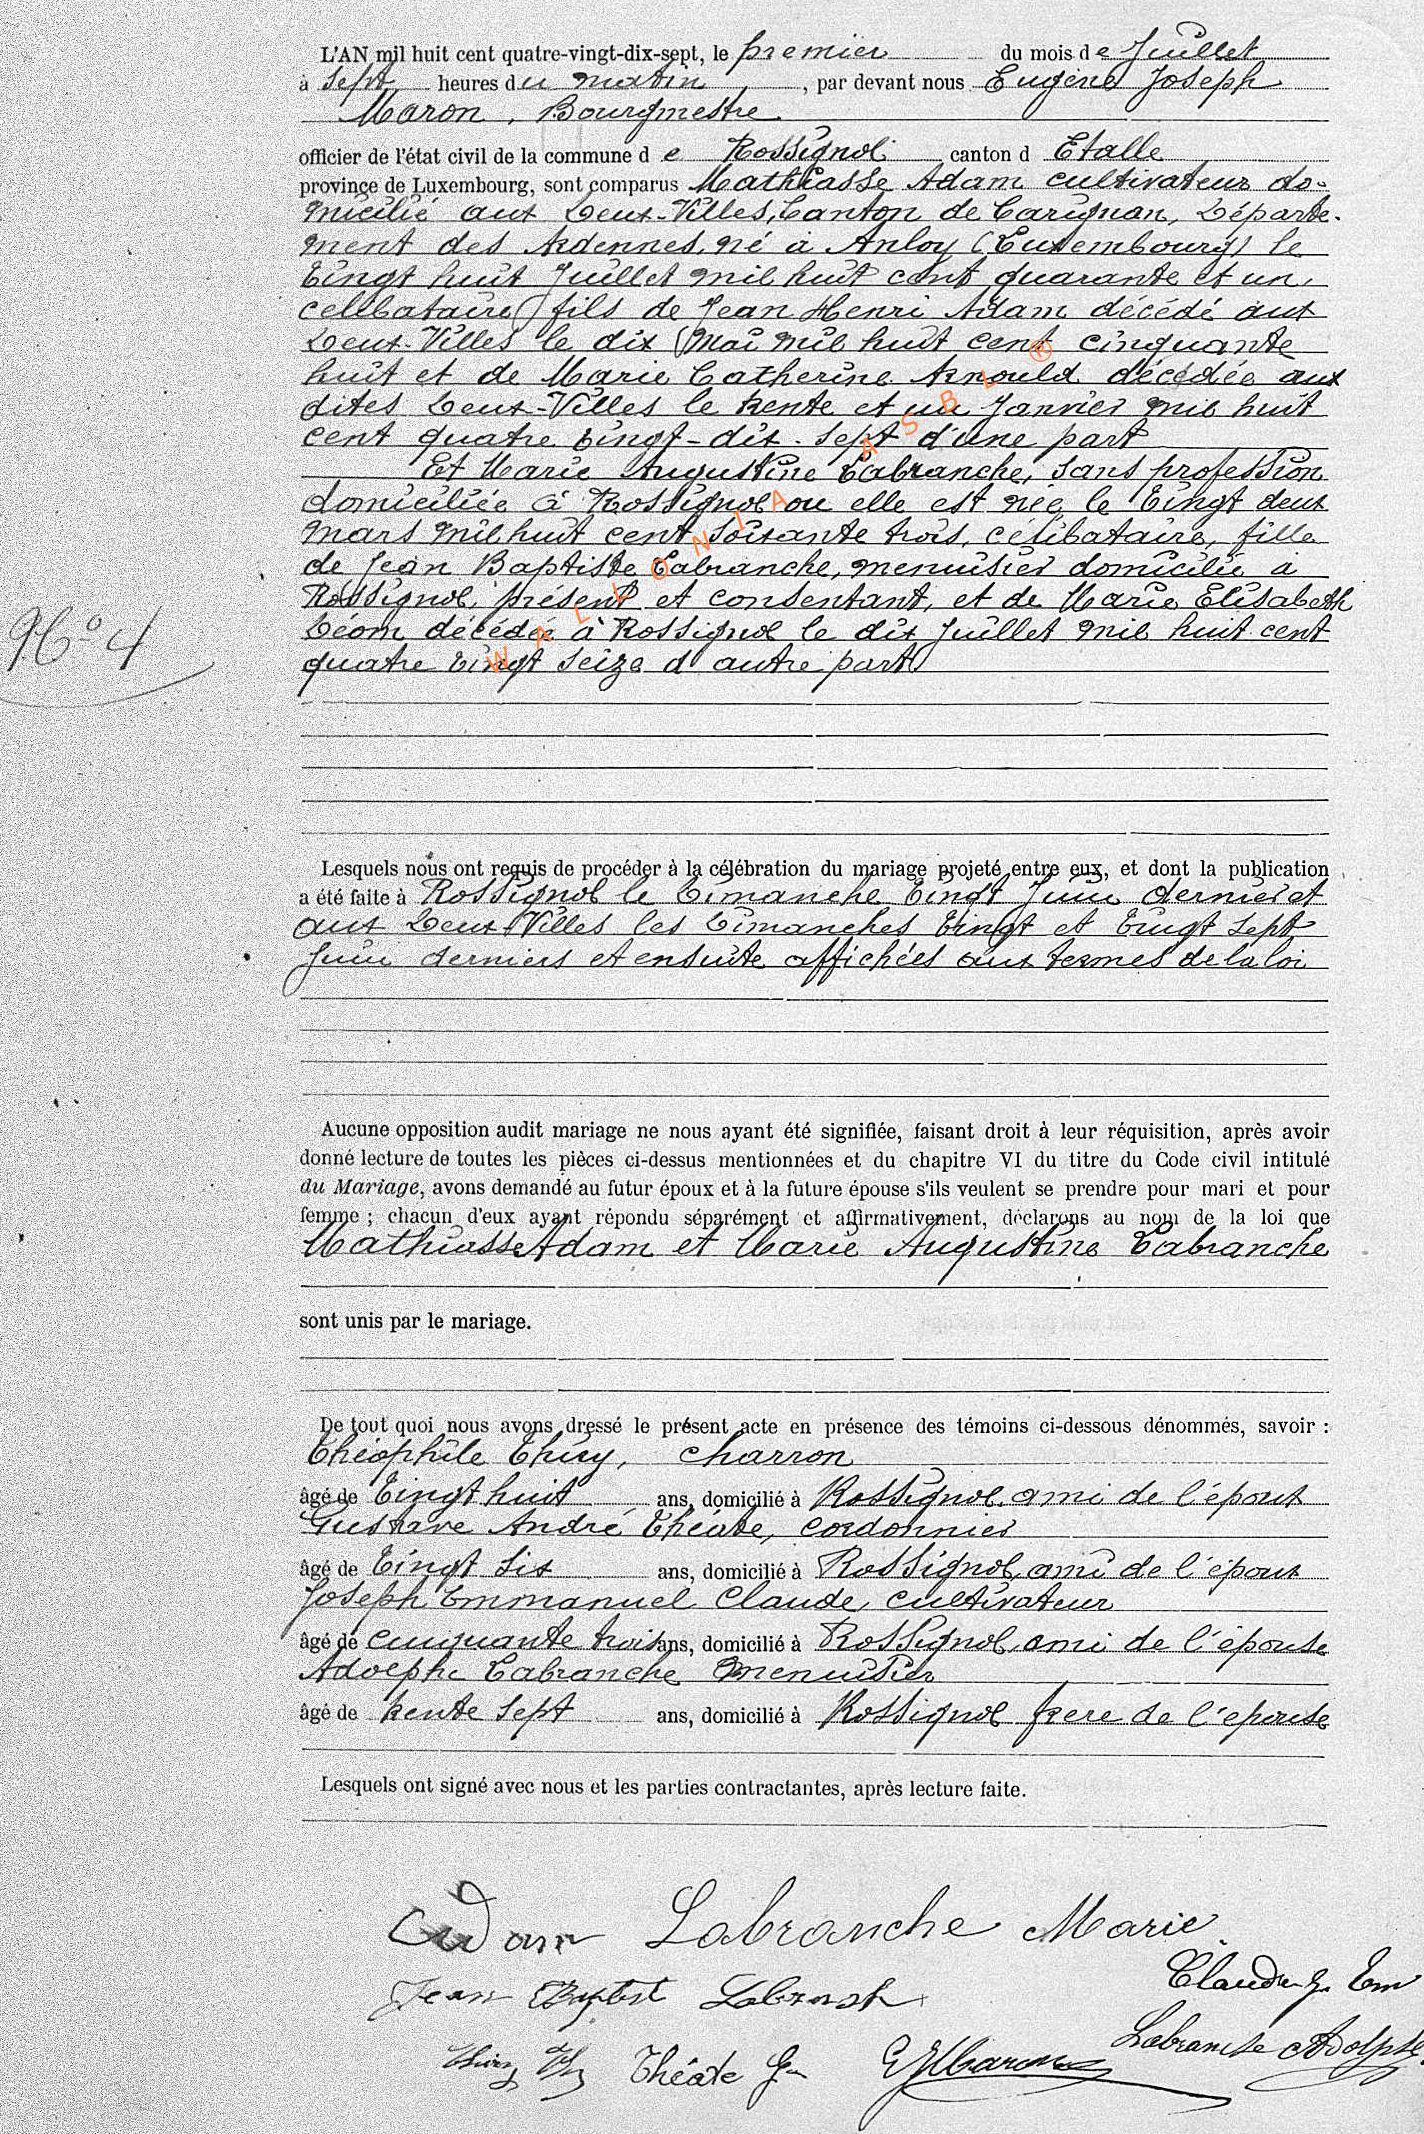 L'AN mil huit cent quatre-vingt-dix-sept, le premier du mois de Juillet
à sept heures du matin, par devant nous Eugène Joseph
Maron, Bourgmestre
officier de l'état civil de la commune de Rossignol canton d Etalle
province de Luxembourg, sont comparus Mathiasse Adam cultivateur do-
micilié aux Deux-Villes, Canton de Carignan, Départe-
ment des Ardennes, né à Anloy (Luxembourg) le
Vingt huit Juillet mil huit cent quarante et un,
célibataire, fils de Jean Henri Adam décédé aux
Deux-Villes le dix Mai mil huit cent cinquante
huit et de Marie Catherine Arnould décédée aux
dites Deux-Villes le trente et un Janvier mil huit
cent quatre vingt-dix-sept d'une part
Et Marie Augustine Labranche, sans profession
domiciliée à Rossignol ou elle est née le Vingt deux
Mars mil huit cent soixante trois, célibataire, fille
de Jean Baptiste Labranche, menuisier domicilié à
Rossignol, présent et consentant, et de Marie Elisabeth
Léom décédée à Rossignol le dix Juillet mil huit cent
N° 4
quatre vingt seize d'autre part
WALLONIA ASBL ®
Lesquels nous ont requis de procéder à la célébration du mariage projeté entre eux, et dont la publication
a été faite à Rossignol le Dimanche Vingt Juin dernier et
aux Deux Villes les Dimanches Vingt et Vingt sept
Juin derniers et ensuite affichées aux termes de la loi
Aucune opposition audit mariage ne nous ayant été signifiée, faisant droit à leur réquisition, après avoir
donné lecture de toutes les pièces ci-dessus mentionnées et du chapitre VI du titre du Code civil intitulé
du Mariage, avons demandé au futur époux et à la future épouse s'ils veulent se prendre pour mari et pour
femme ; chacun d'eux ayant répondu séparément et affirmativement, déclarons au nom de la loi que
Mathiasse Adam et Marie Augustine Labranche
sont unis par le mariage.
De tout quoi nous avons dressé le présent acte en présence des témoins ci-dessous dénommés, savoir :
Théophile Thiry, charron
âgé de Vingt huit ans, domicilié à Rossignol, ami de l'époux
Gustave André Théate, cordonnier
âgé de Vingt six ans, domicilié à Rossignol, ami de l'époux
Joseph Emmanuel Claude, cultivateur
âgé de cinquante trois ans, domicilié à Rossignol, ami de l'épouse
Adolphe Labranche menuisier
âgé de trente sept ans, domicilié à Rossignol frere de l'épouse
Lesquels ont signé avec nous et les parties contractantes, après lecture faite.
Adam Labranche Marie
Claude J. Em
Jean Baptist Labransh
Labranche Adolphe
Thiry Th Théate G EJMaron